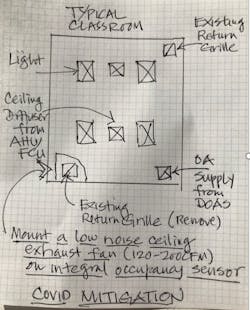 TYPICAL
CLASSROOM
Existing
Return
Grille
Light
Ceiling
Diffuser
from
AHU/
FCU
OA
Supply
from
DOAS
Existing
Return Grille (Remove)
Mount a low noise ceiling
exhaust fan (120-200CFM)
on integral occupancy sensor
COVID MITIGATION